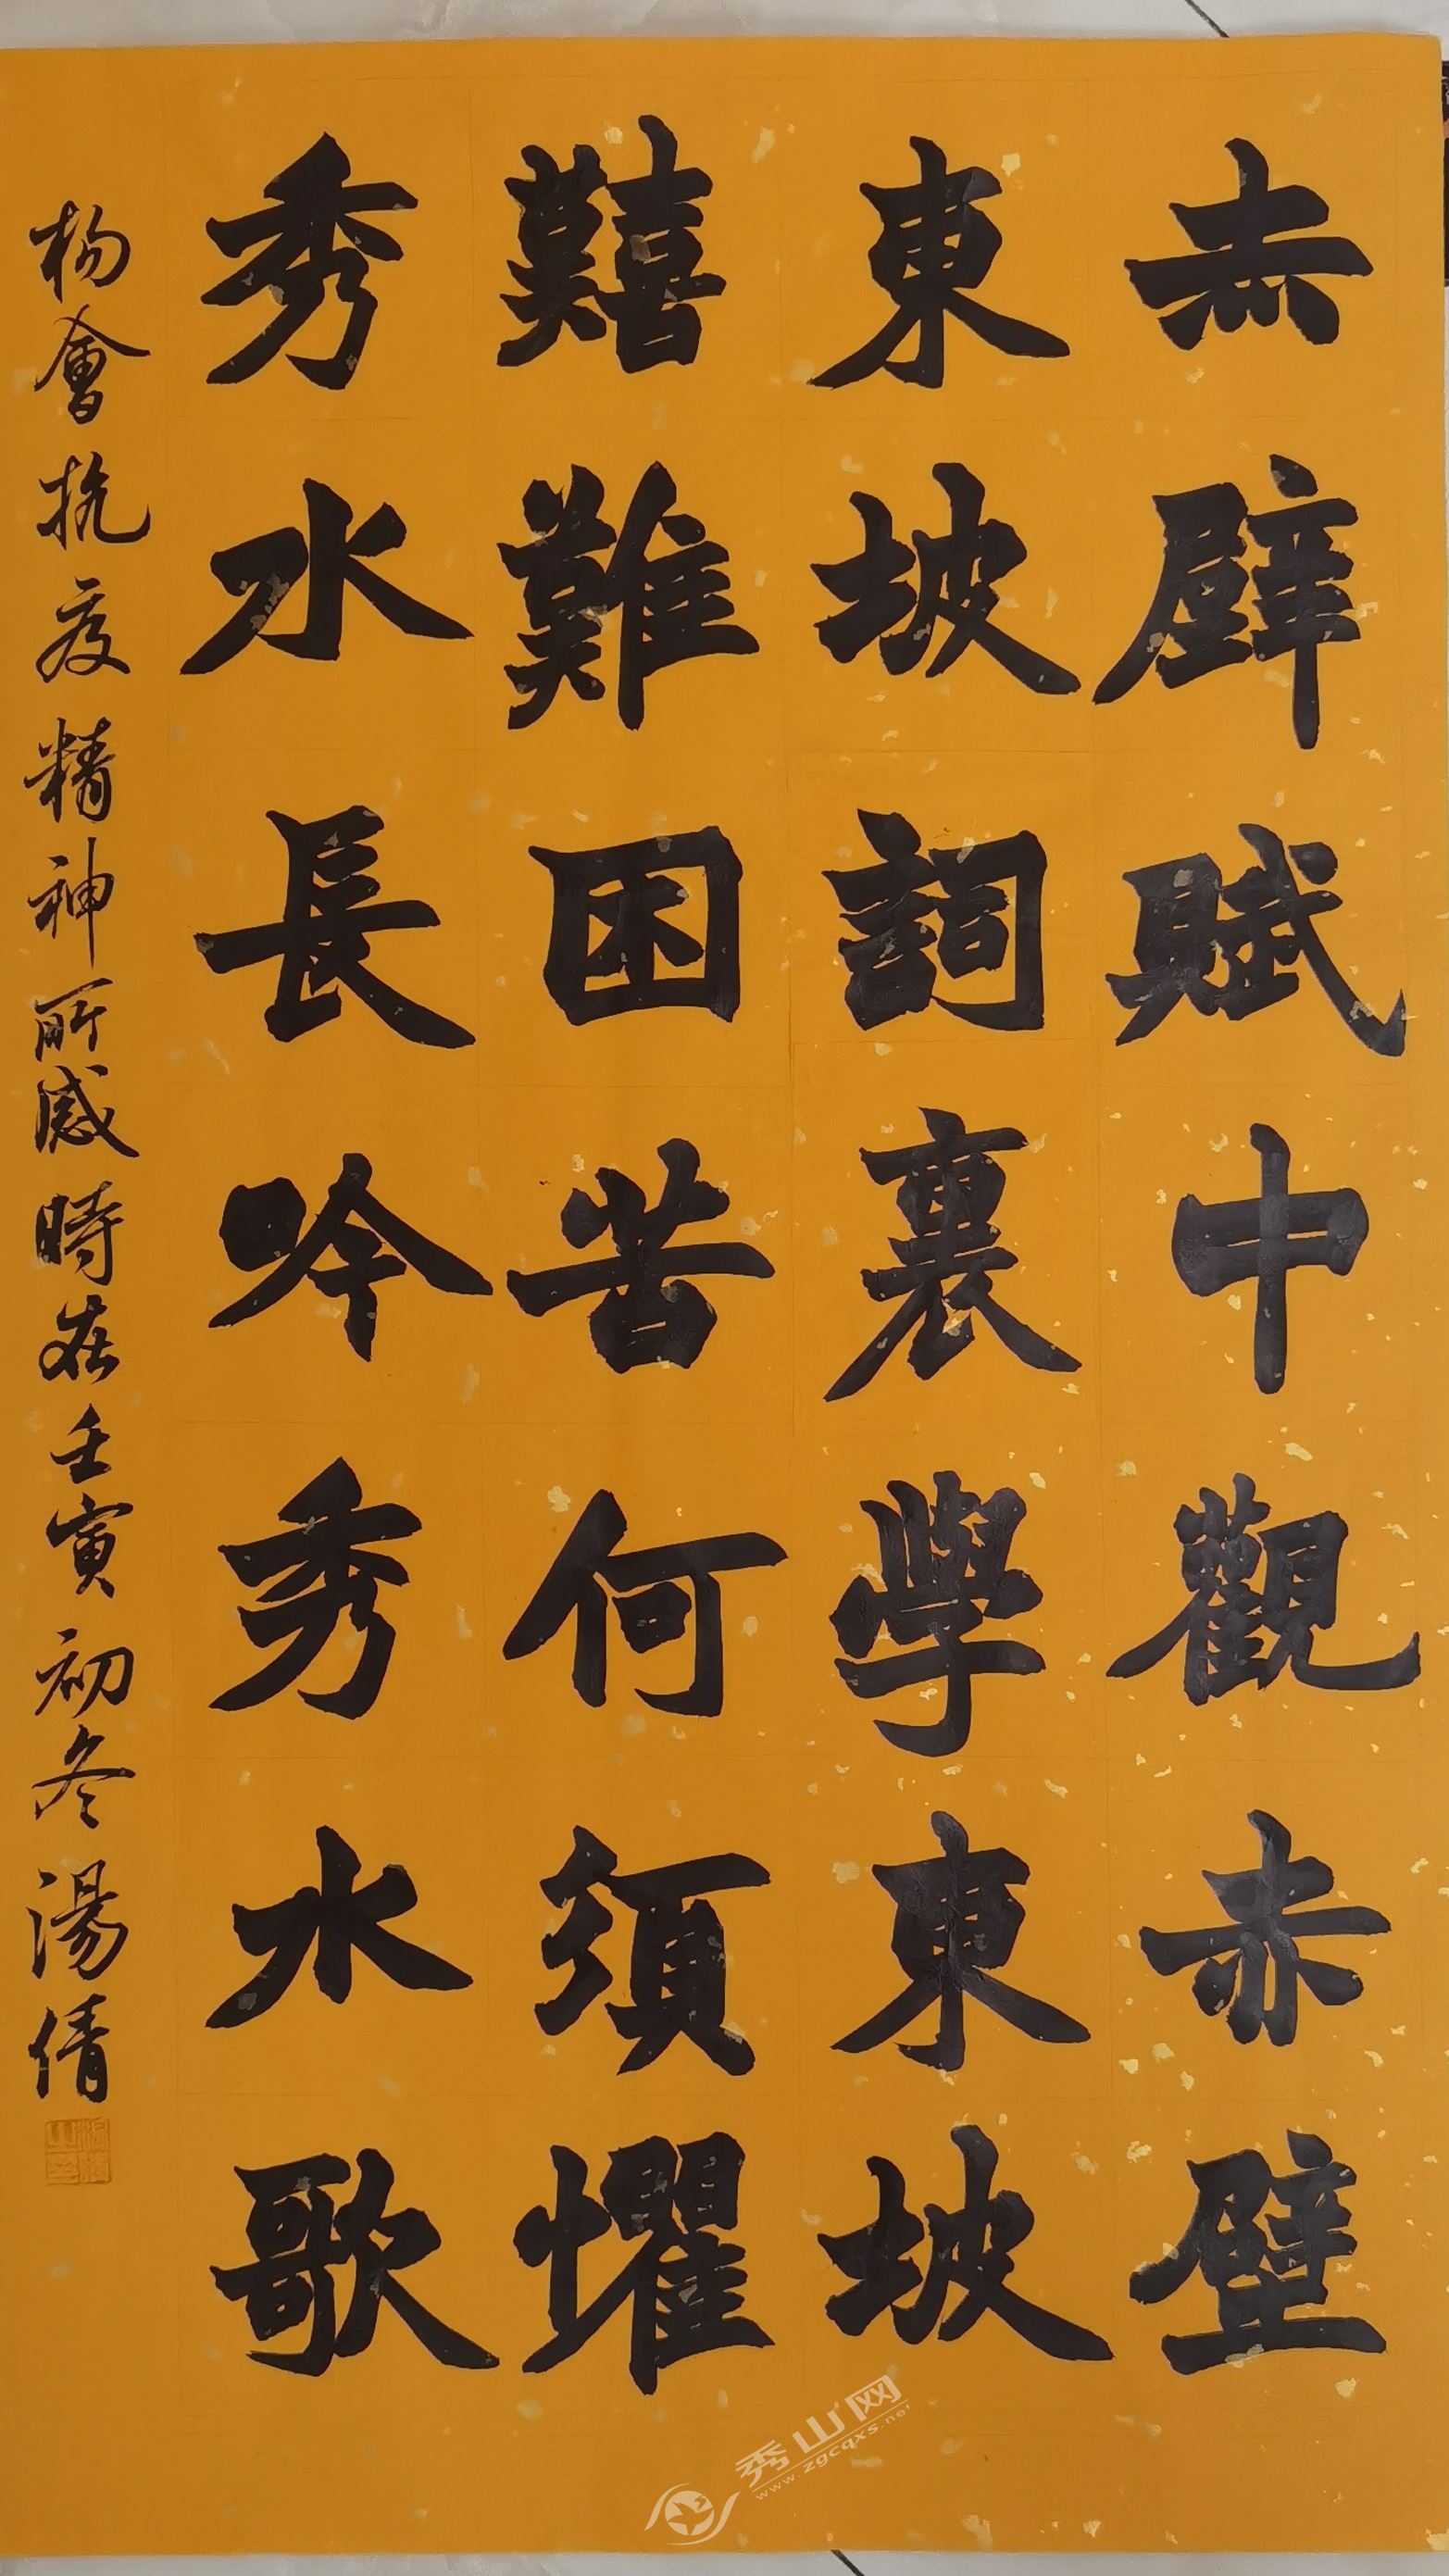 赤壁賦中觀赤壁
東坡詞裏學東坡
囏難困苦何須懼
秀水長吟秀水歌
杨會抗疫精神所感時在壬寅初冬湯倩
秀山网
www.zgcqxs.net